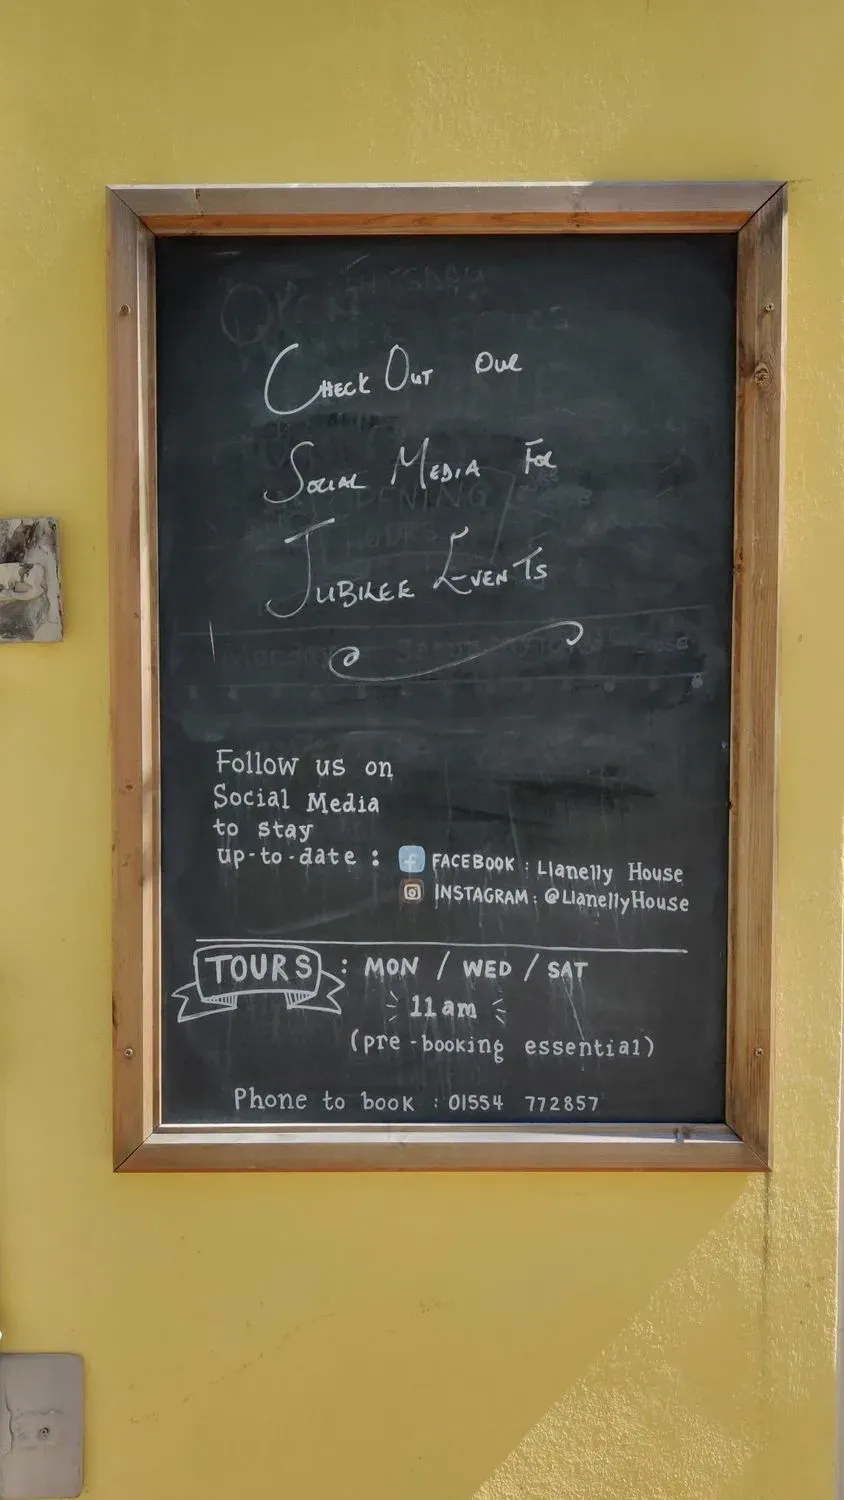 Check Out our
Social Media For
Jubilee Events
Follow us on
Social Media
to stay
up-to-date :
f FACEBOOK : Llanelly House
INSTAGRAM : @LlanellyHouse
TOURS : MON / WED / SAT
11am
(pre-booking essential)
Phone to book : 01554 772857